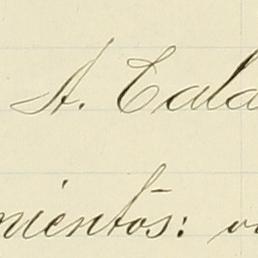 A. Cala
mientos: